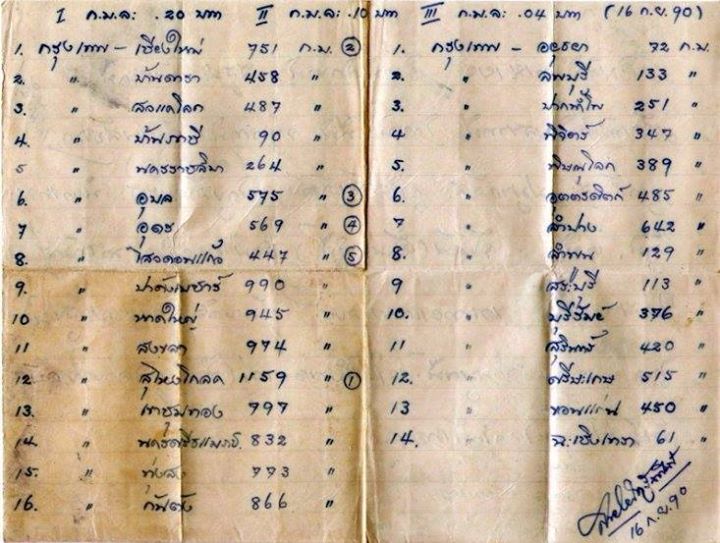 I ก.ม.ละ .20 บาท II ก.ม.ละ .10 บาท III ก.ม.ละ .04 บาท (16 ก.ย. 90)
1. กรุงเทพ - เชียงใหม่ 751 ก.ม. ②
2. " บ้านดารา 458 "
3. " สวรรคโลก 487 "
4. " บ้านภาชี 90 "
5 " นครราชสีมา 264 "
6. " อุบล 575 " ③
7 " อุดร 569 " ④
8. " 447 " ⑤
9. " ปาดังเบซาร์ 990 "
10 " หาดใหญ่ 945 "
11 " สงขลา 974 "
12 " สุไหงโกลก 1159 " ①
13. " เขาชุมทอง 797 "
14. " นครศรีธรรมราช 832 "
15. " ทุ่งสง 773 "
16. " กันตัง 866 "
1. กรุงเทพ - อยุธยา 72 ก.ม.
2. " ลพบุรี 133 "
3. " ปากน้ำโพ 251 "
4 " พิจิตร์ 347 "
5. " พิษณุโลก 389 "
6. " อุตตรดิตถ์ 485 "
7 " ลำปาง 642 "
8. " ลำพูน 129 "
9 " สระบุรี 113 "
10. " บุรีรัมย์ 376 "
11 " สุรินทร์ 420 "
12. " ศรีษะเกษ 515 "
13 " ขอนแก่น 450 "
14. " ฉะเชิงเทรา 61 "
16 ก.ย. 90